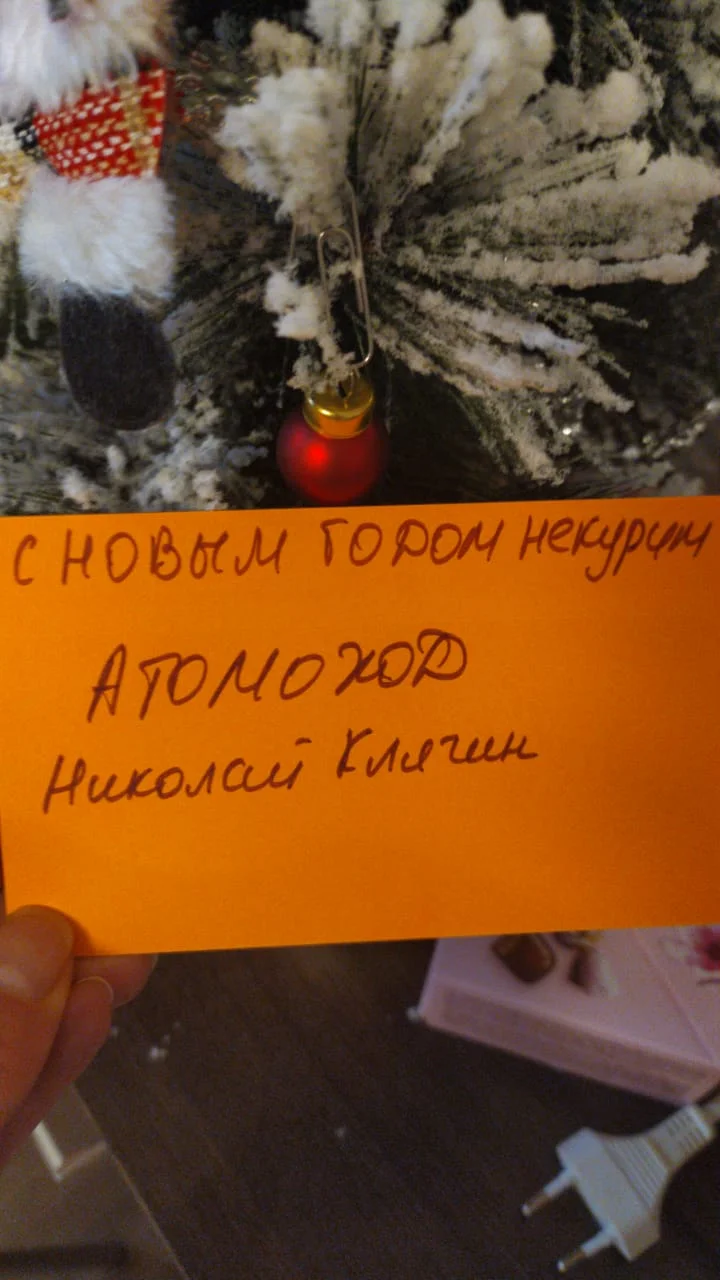 С НОВЫМ ГОДОМ Некурим
АТОМОХОД
Николай Клягин